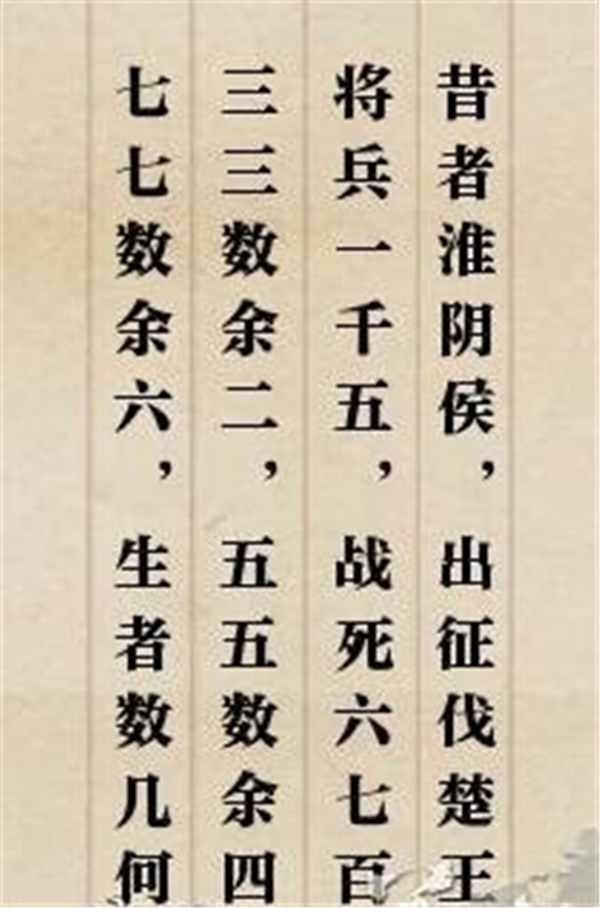 昔者淮阴侯，出征伐楚王
将兵一千五，战死六七百
三三数余二，五五数余四
七七数余六，生者数几何